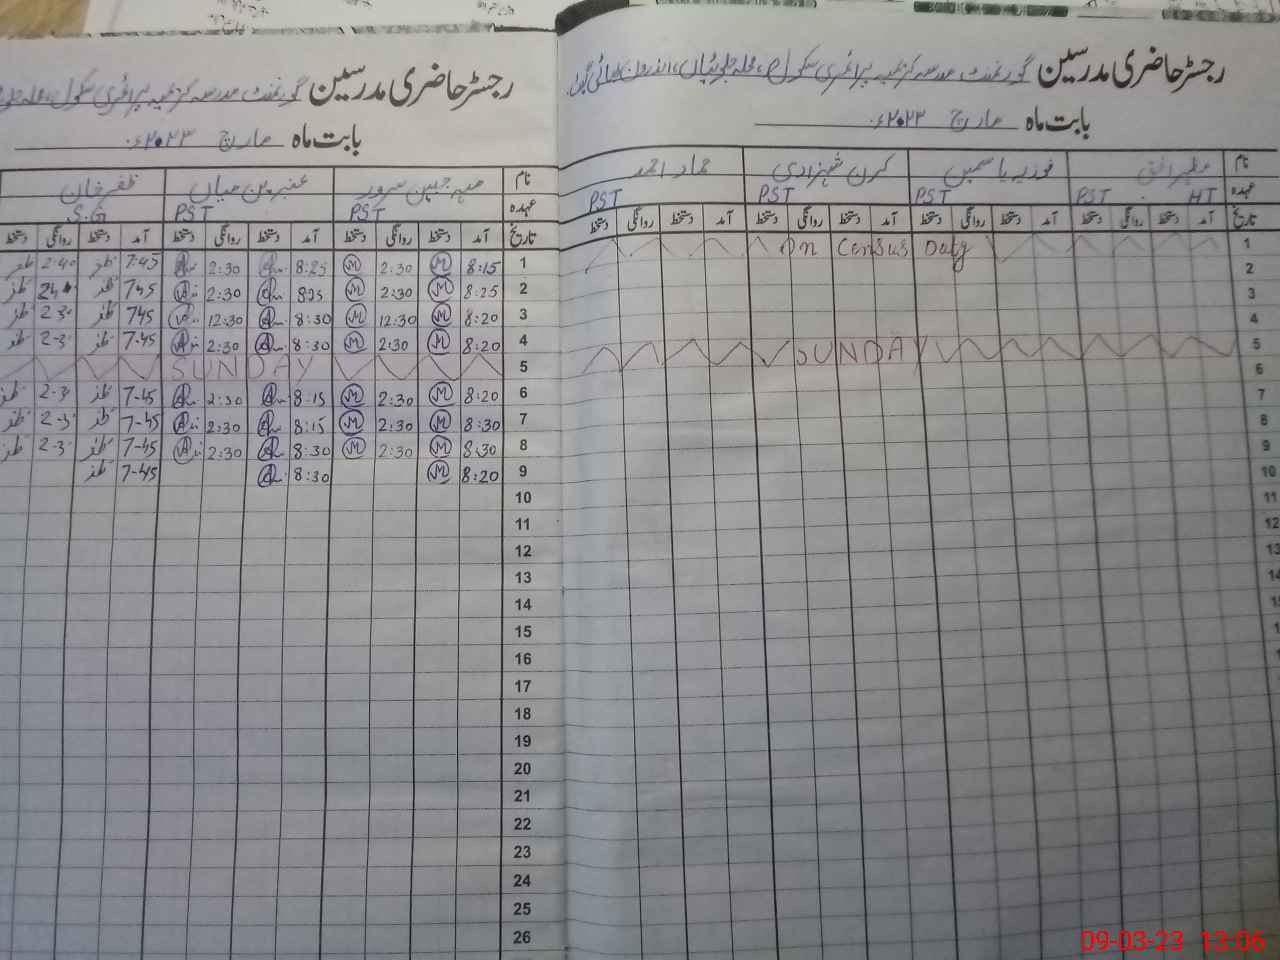 رجسٹر حاضری مدرسین گورنمنٹ مدرسہ کریمیہ پرائمری سکول
بابت ماہ مارچ ۲۰۲۳ء
نام مہ جبین سرور عنبرین میاں ظفر خان
عہدہ PST PST S.G
تاریخ آمد دستخط روانگی دستخط آمد دستخط روانگی دستخط آمد دستخط روانگی دستخط
1 8:15 M 2:30 M 8:25 2:30 7:45 ظفر 2:40 ظفر
2 8:25 M 2:30 M 8:25 2:30 7:45 ظفر ظفر
3 8:20 M 12:30 M 8:30 12:30 7:45 ظفر 2:30 ظفر
4 8:20 M 2:30 M 8:30 2:30 7:45 ظفر 2:30 ظفر
5 SUNDAY
6 8:20 M 2:30 M 8:15 2:30 7-45 ظفر 2-30 ظفر
7 8:30 M 2:30 M 8:15 2:30 7-45 ظفر 2-30 ظفر
8 8:30 M 2:30 M 8:30 2:30 7-45 ظفر 2-30 ظفر
9 8:20 M 8:30 7-45 ظفر
10
11
12
13
14
15
16
17
18
19
20
21
22
23
24
25
26
رجسٹر حاضری مدرسین گورنمنٹ مدرسہ کریمیہ پرائمری سکول
بابت ماہ مارچ ۲۰۲۳ء
نام مظہر الحق فوزیہ یاسمین کرن شہزادی حماد احمد
عہدہ HT PST PST PST PST
تاریخ آمد دستخط روانگی دستخط آمد دستخط روانگی دستخط آمد دستخط روانگی دستخط آمد دستخط روانگی دستخط
1 On Census Duty
2
3
4
5 SUNDAY
6
7
8
9
10
11
12
13
14
09-03-23 13:06